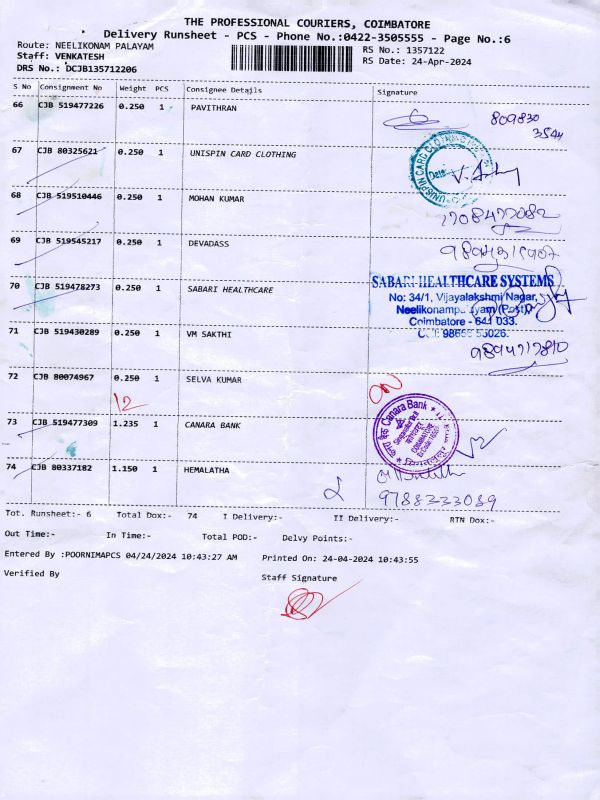 THE PROFESSIONAL COURIERS, COIMBATORE
Delivery Runsheet - PCS - Phone No.:0422-3505555 - Page No.:6
Route: NEELIKONAM PALAYAM RS No.: 1357122
Staff: VENKATESH RS Date: 24-Apr-2024
DRS No.: DCJB135712206
S No Consignment No Weight PCS Consignee Details Signature
66 CJB 519477226 0.250 1 PAVITHRAN 809830
3544
67 CJB 80325621 0.250 1 UNISPIN CARD CLOTHING
UNISPIN CARD CLOTHING
Date:
68 CJB 519510446 0.250 1 MOHAN KUMAR
69 CJB 519545217 0.250 1 DEVADASS
70 CJB 519478273 0.250 1 SABARI HEALTHCARE
SABARI HEALTHCARE SYSTEMS
No: 34/1, Vijayalakshmi Nagar,
Neelikonampalayam (Post),
Coimbatore - 641 033.
71 CJB 519430289 0.250 1 VM SAKTHI
9894717810
72 CJB 80074967 0.250 1 SELVA KUMAR
12
73 CJB 519477309 1.235 1 CANARA BANK
Canara Bank
COIMBATORE
74 CJB 80337182 1.150 1 HEMALATHA
9788333089
Tot. Runsheet:- 6 Total Dox:- 74 I Delivery:- II Delivery:- RTN Dox:-
Out Time:- In Time:- Total POD:- Delvy Points:-
Entered By :POORNIMAPCS 04/24/2024 10:43:27 AM Printed On: 24-04-2024 10:43:55
Verified By Staff Signature